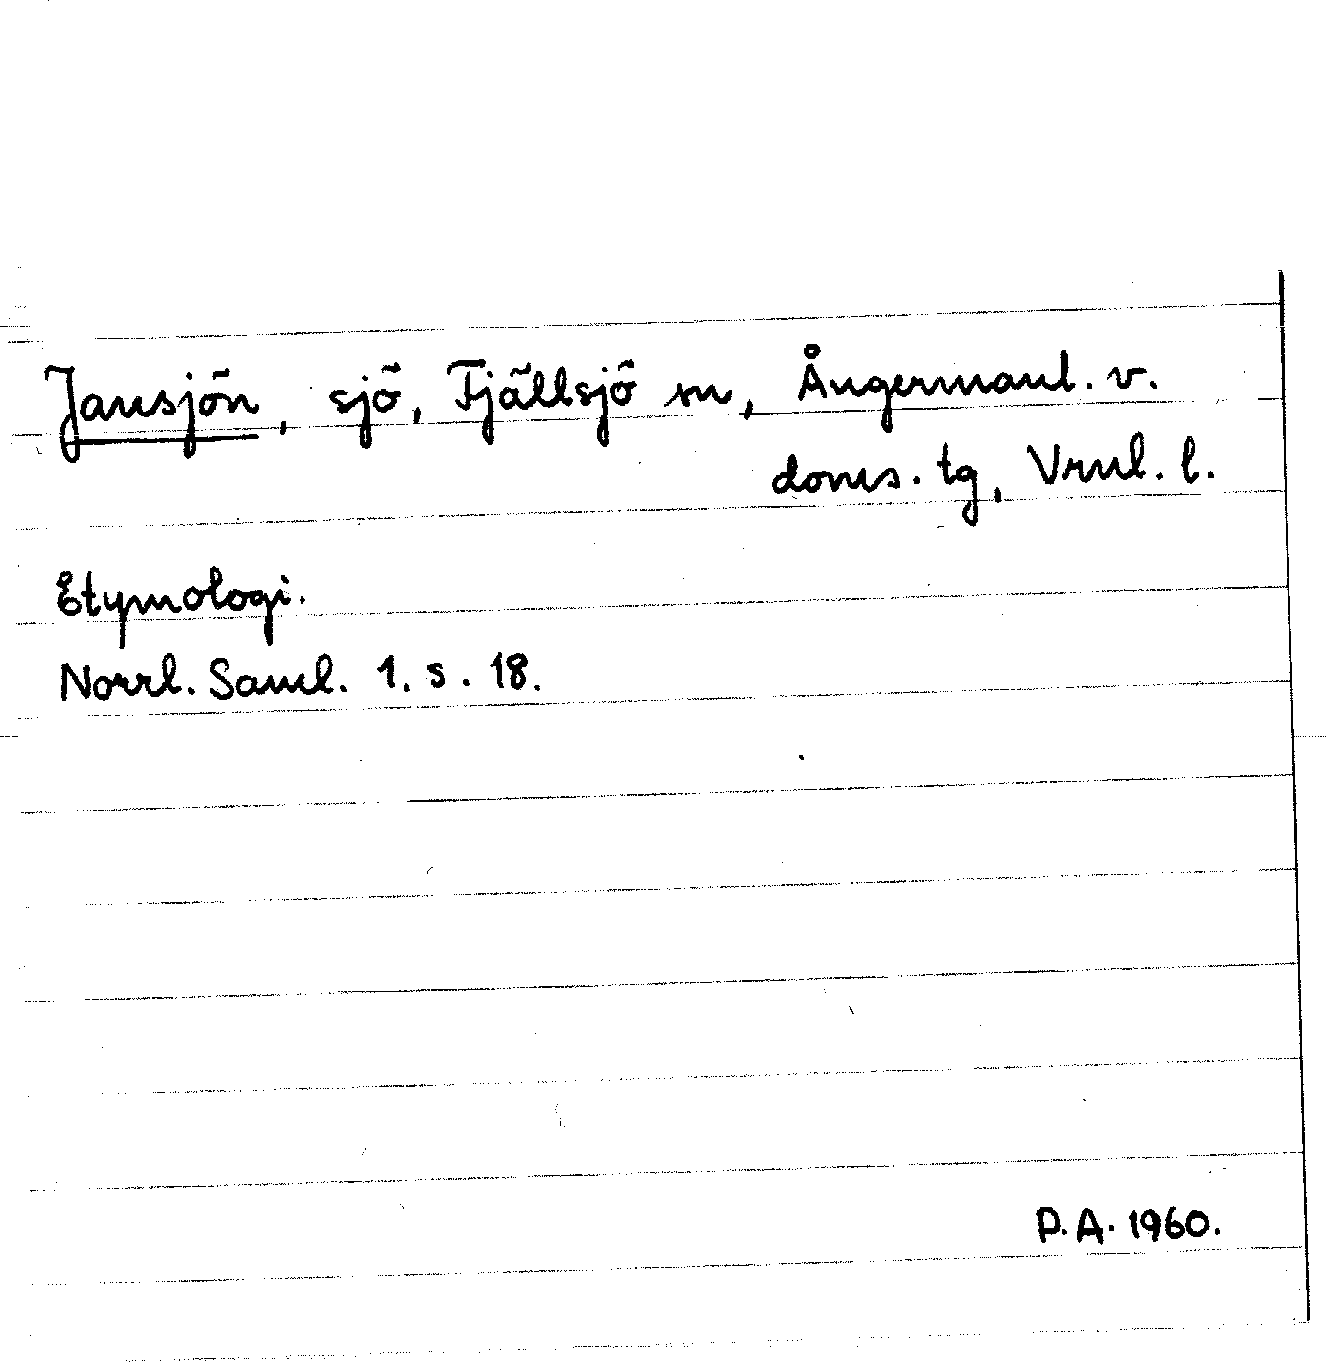 Jansjön, sjö, Fjällsjö sn, Ångermanl. v.
doms. tg, Vrnl. l.
Etymologi.
Norrl. Saml. 1. s. 18.
P.A. 1960.